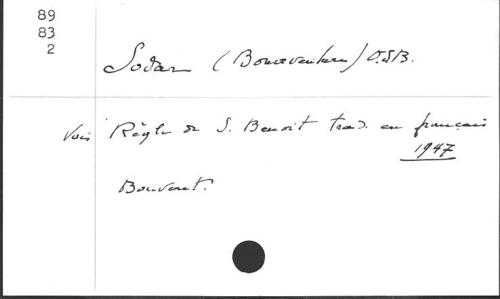 89
83
2
Sodar (Bonaventure) O.S.B.
Vois Règle de S. Benoit trad. en français
1947
Bouvent.